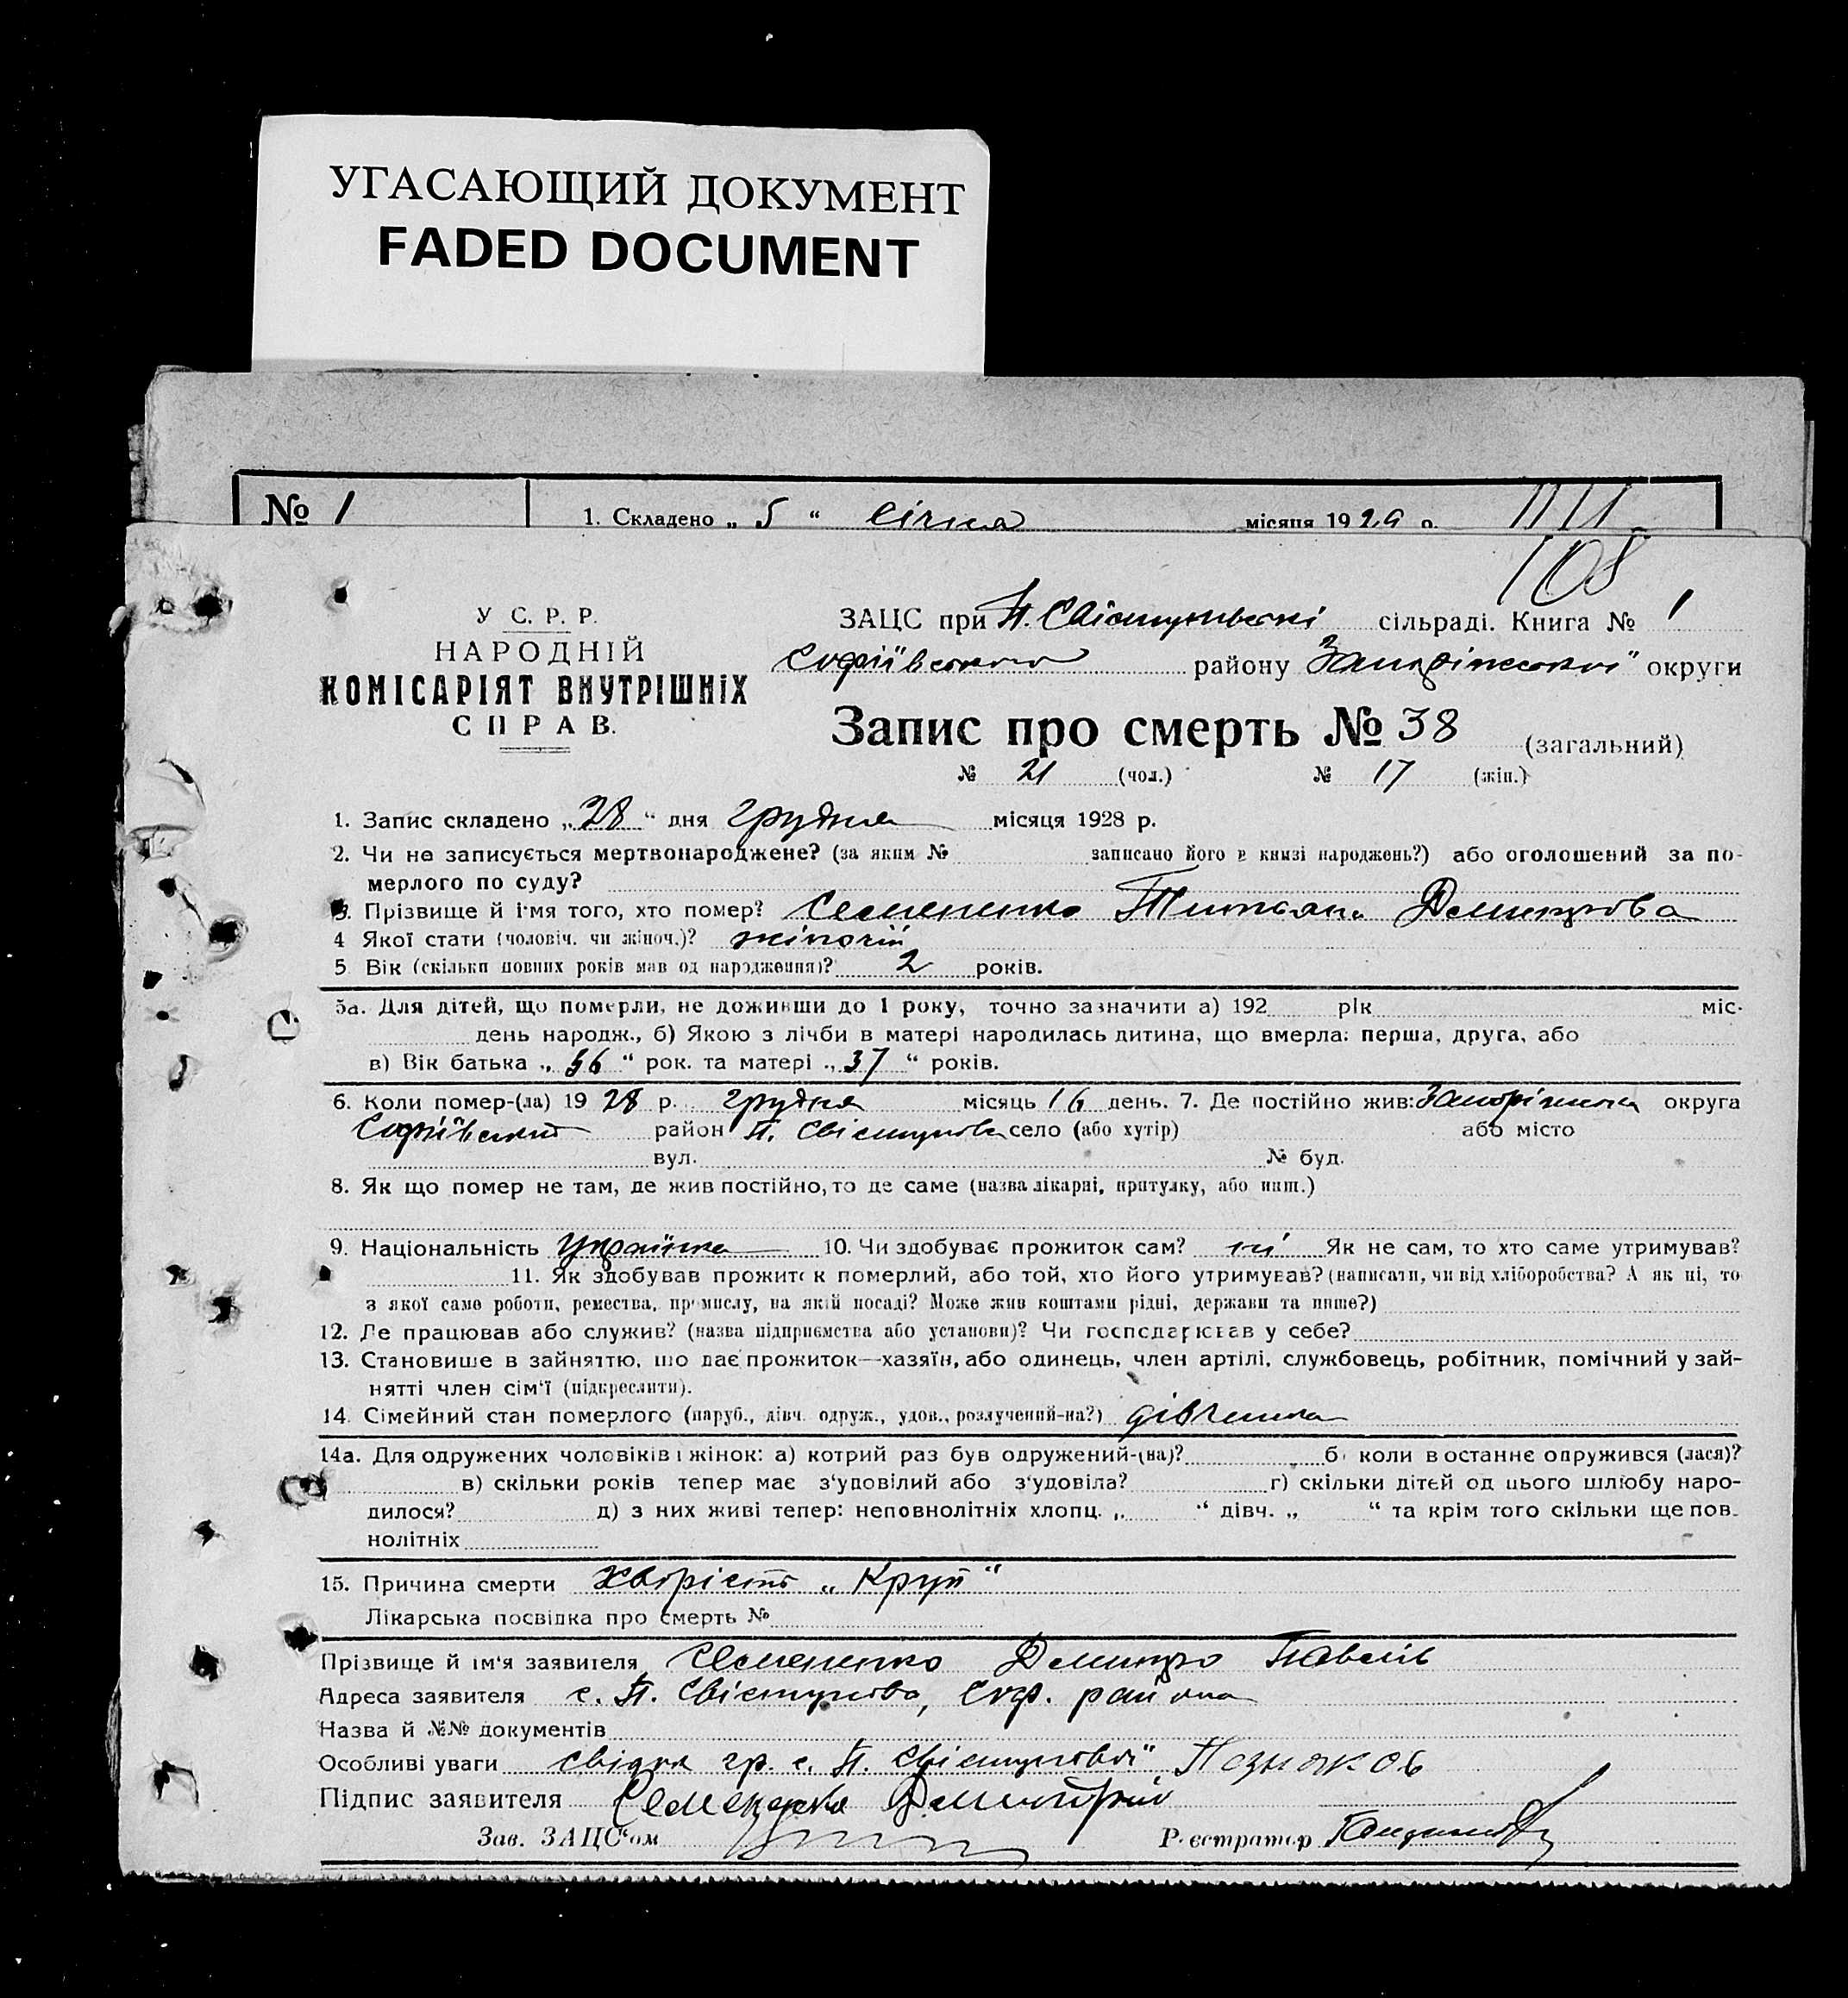 УГАСАЮЩИЙ ДОКУМЕНТ
FADED DOCUMENT
№ 1 1. Складено „ 5 “ січня місяця 1929 р.
108
У С. Р. Р.
НАРОДНІЙ
КОМІСАРІЯТ ВНУТРІШНІХ
СПРАВ.
ЗАЦС при П. Свістунівські сільраді. Книга № 1
Софіївського району Запоріжської округи
Запис про смерть № 38 (загальний)
№ 21 (чол.) № 17 (жін.)
1. Запис складено „ 28 “ дня грудня місяця 1928 р.
2. Чи не записується мертвонароджене? (за яким № записано його в книзі народжень?) або оголошений за по-
мерлого по суду?
3. Прізвище й ім'я того, хто помер? Семененко Титяна Дмитрова
4 Якої стати (чоловіч. чи жіноч.)? жіночій
5 Вік (скільки повних років мав од народження)? 2 років.
5а. Для дітей, що померли, не доживши до 1 року, точно зазначити а) 192 рік міс.
день народж., б) Якою з лічби в матері народилась дитина, що вмерла: перша, друга, або
в) Вік батька „ 56 “ рок. та матері „ 37 “ років.
6. Коли помер-(ла) 19 28 р. грудня місяць 16 день. 7. Де постійно жив: Запоріжська округа
Софіївський район П. Свістунова село (або хутір) або місто
вул. № буд.
8. Як що помер не там, де жив постійно, то де саме (назва лікарні, притулку, або инш.)
9. Національність Українка 10. Чи здобуває прожиток сам? ні Як не сам, то хто саме утримував?
11. Як здобував прожиток померлий, або той, хто його утримував? (написати, чи від хліборобства? А як ні, то
з якої саме роботи, ремества, промислу, на якій посаді? Може жив коштами рідні, держави та инше?)
12. Де працював або служив? (назва підприємства або установи)? Чи господарював у себе?
13. Становище в зайняттю, що дає прожиток—хазяїн, або одинець, член артілі, службовець, робітник, помічний у зай-
нятті член сім'ї (підкреслити).
14. Сімейний стан померлого (паруб., дівч. одруж., удов., розлучений-на?) дівчина
14а. Для одружених чоловіків і жінок: а) котрий раз був одружений-(на)? б) коли в останнє одружився (лася)?
в) скільки років тепер має з‘удовілий або з‘удовіла? г) скільки дітей од цього шлюбу наро-
дилося? д) з них живі тепер: неповнолітніх хлопц. „ “ дівч. „ “ та крім того скільки ще пов-
нолітніх
15. Причина смерти Хворість „Круп“
Лікарська посвідка про смерть №
Прізвище й ім‘я заявителя Семененко Дмитро Павлів
Адреса заявителя с. П. Свістунова, Соф. району
Назва й №№ документів
Особливі уваги свідки гр. с. П. Свістунової Позняков
Підпис заявителя Семененко Дмитрій
Зав. ЗАЦС‘ом
Реєстратор